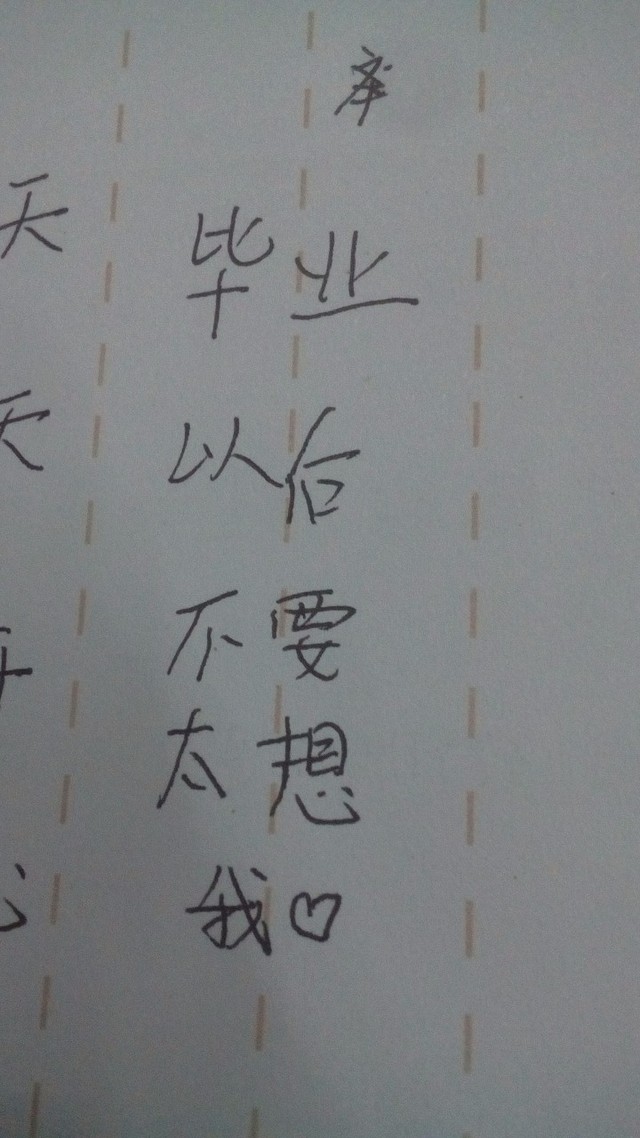 毕业
以后
不要
太想
我♡
天
天